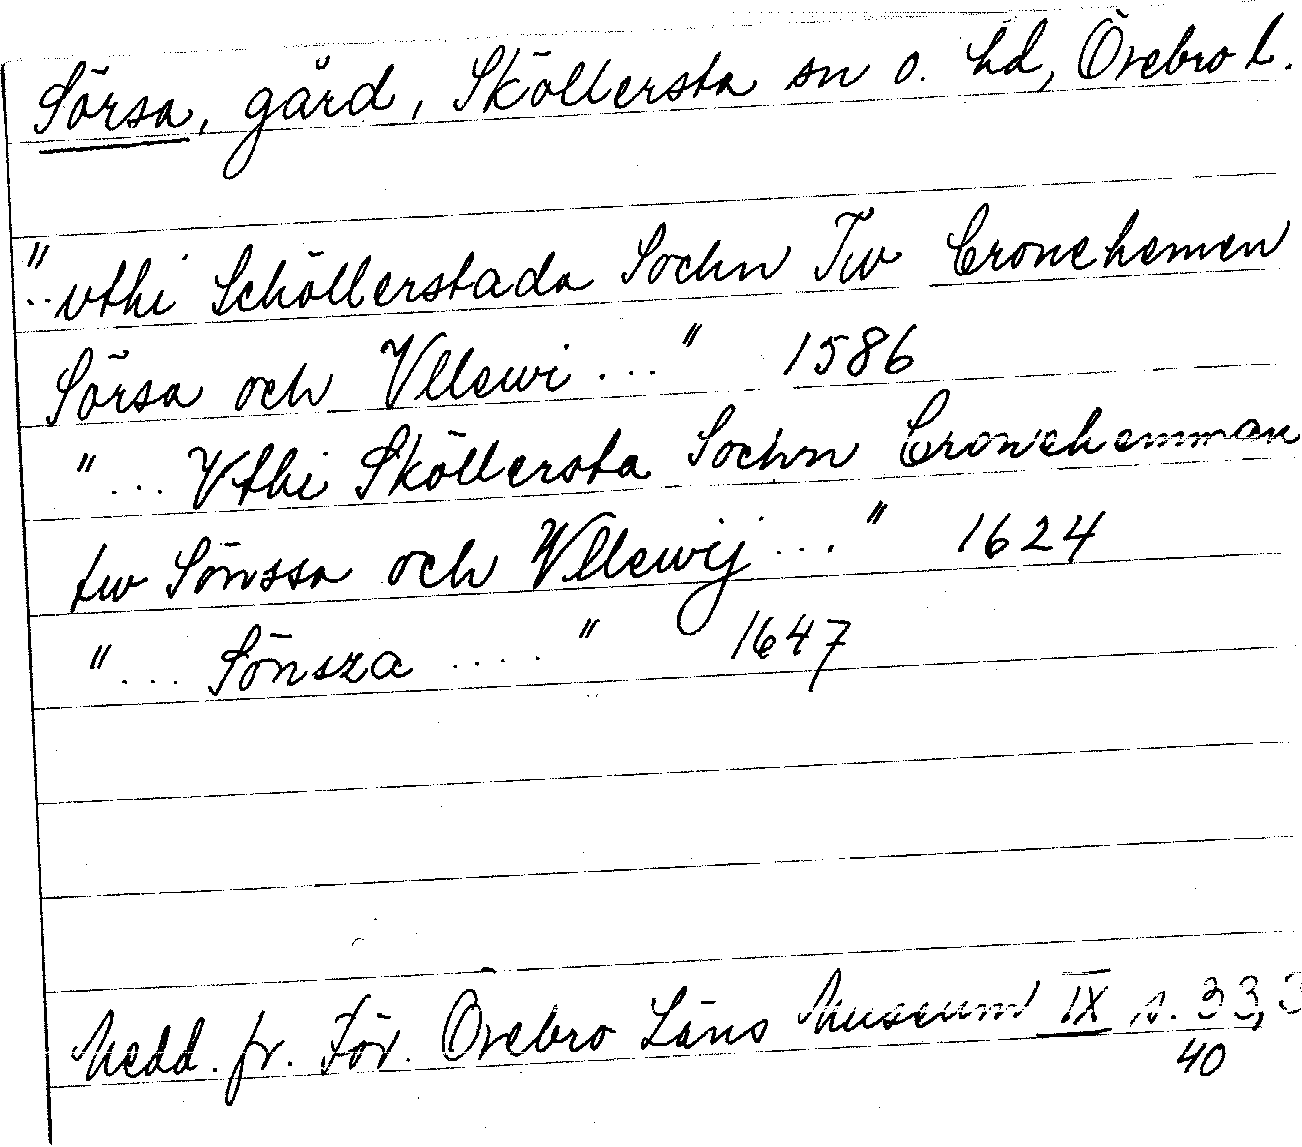 Sörsa, gård, Sköllersta sn o. hd, Örebro l.
"..vthi Schöllerstada Sochn Tw Cronehemen
Sörsa och Vllewi ..." 1586
"... Vthi Sköllersta Sochn Cronehemman
tw Sönssa och Wllewij ..." 1624
"... Sönsza ...." 1647
Medd. fr. För. Örebro Läns Museum IX s. 33,
40